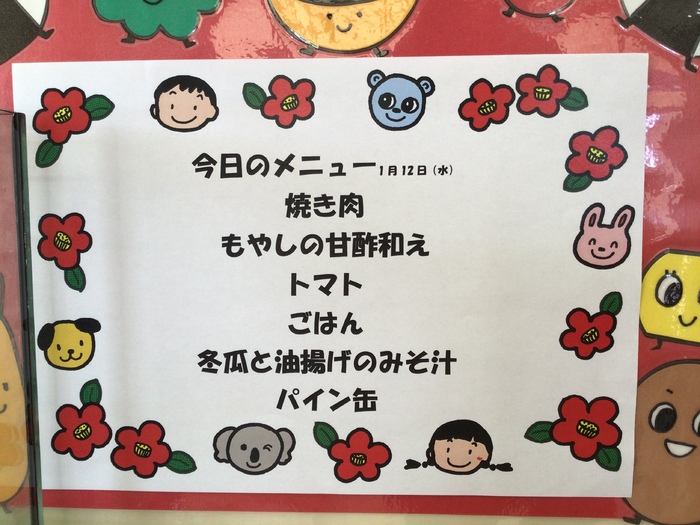 今日のメニュー1月12日(水)
焼き肉
もやしの甘酢和え
トマト
ごはん
冬瓜と油揚げのみそ汁
パイン缶